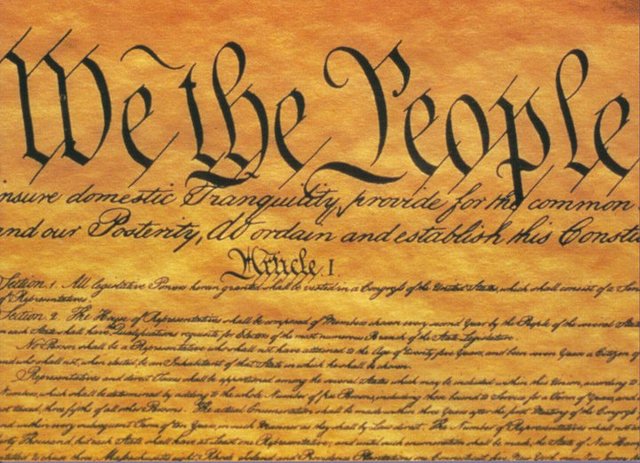 We the People
insure domestic Tranquility, provide for the common
and our Posterity, do ordain and establish this Constit
Article. I.
Section. 1. All legislative Powers herein granted shall be vested in a Congress of the United States, which shall consist of a Sen
of Representatives.
Section. 2. The House of Representatives shall be composed of Members chosen every second Year by the People of the several States
in each State shall have Qualifications requisite for Electors of the most numerous Branch of the State Legislature.
No Person shall be a Representative who shall not have attained to the Age of twenty five Years, and been seven Years a Citizen of
and who shall not, when elected, be an Inhabitant of that State in which he shall be chosen.
Representatives and direct Taxes shall be apportioned among the several States which may be included within this Union, according to
which shall be determined by adding to the whole Number of free Persons, including those bound to Service for a Term of Years, and
not taxed, three fifths of all other Persons. The actual Enumeration shall be made within three Years after the first Meeting of the Congress
and within every subsequent Term of ten Years, in such Manner as they shall by Law direct. The Number of Representatives shall not
Thousand, but each State shall have at Least one Representative; and until such enumeration shall be made, the State of New Ham